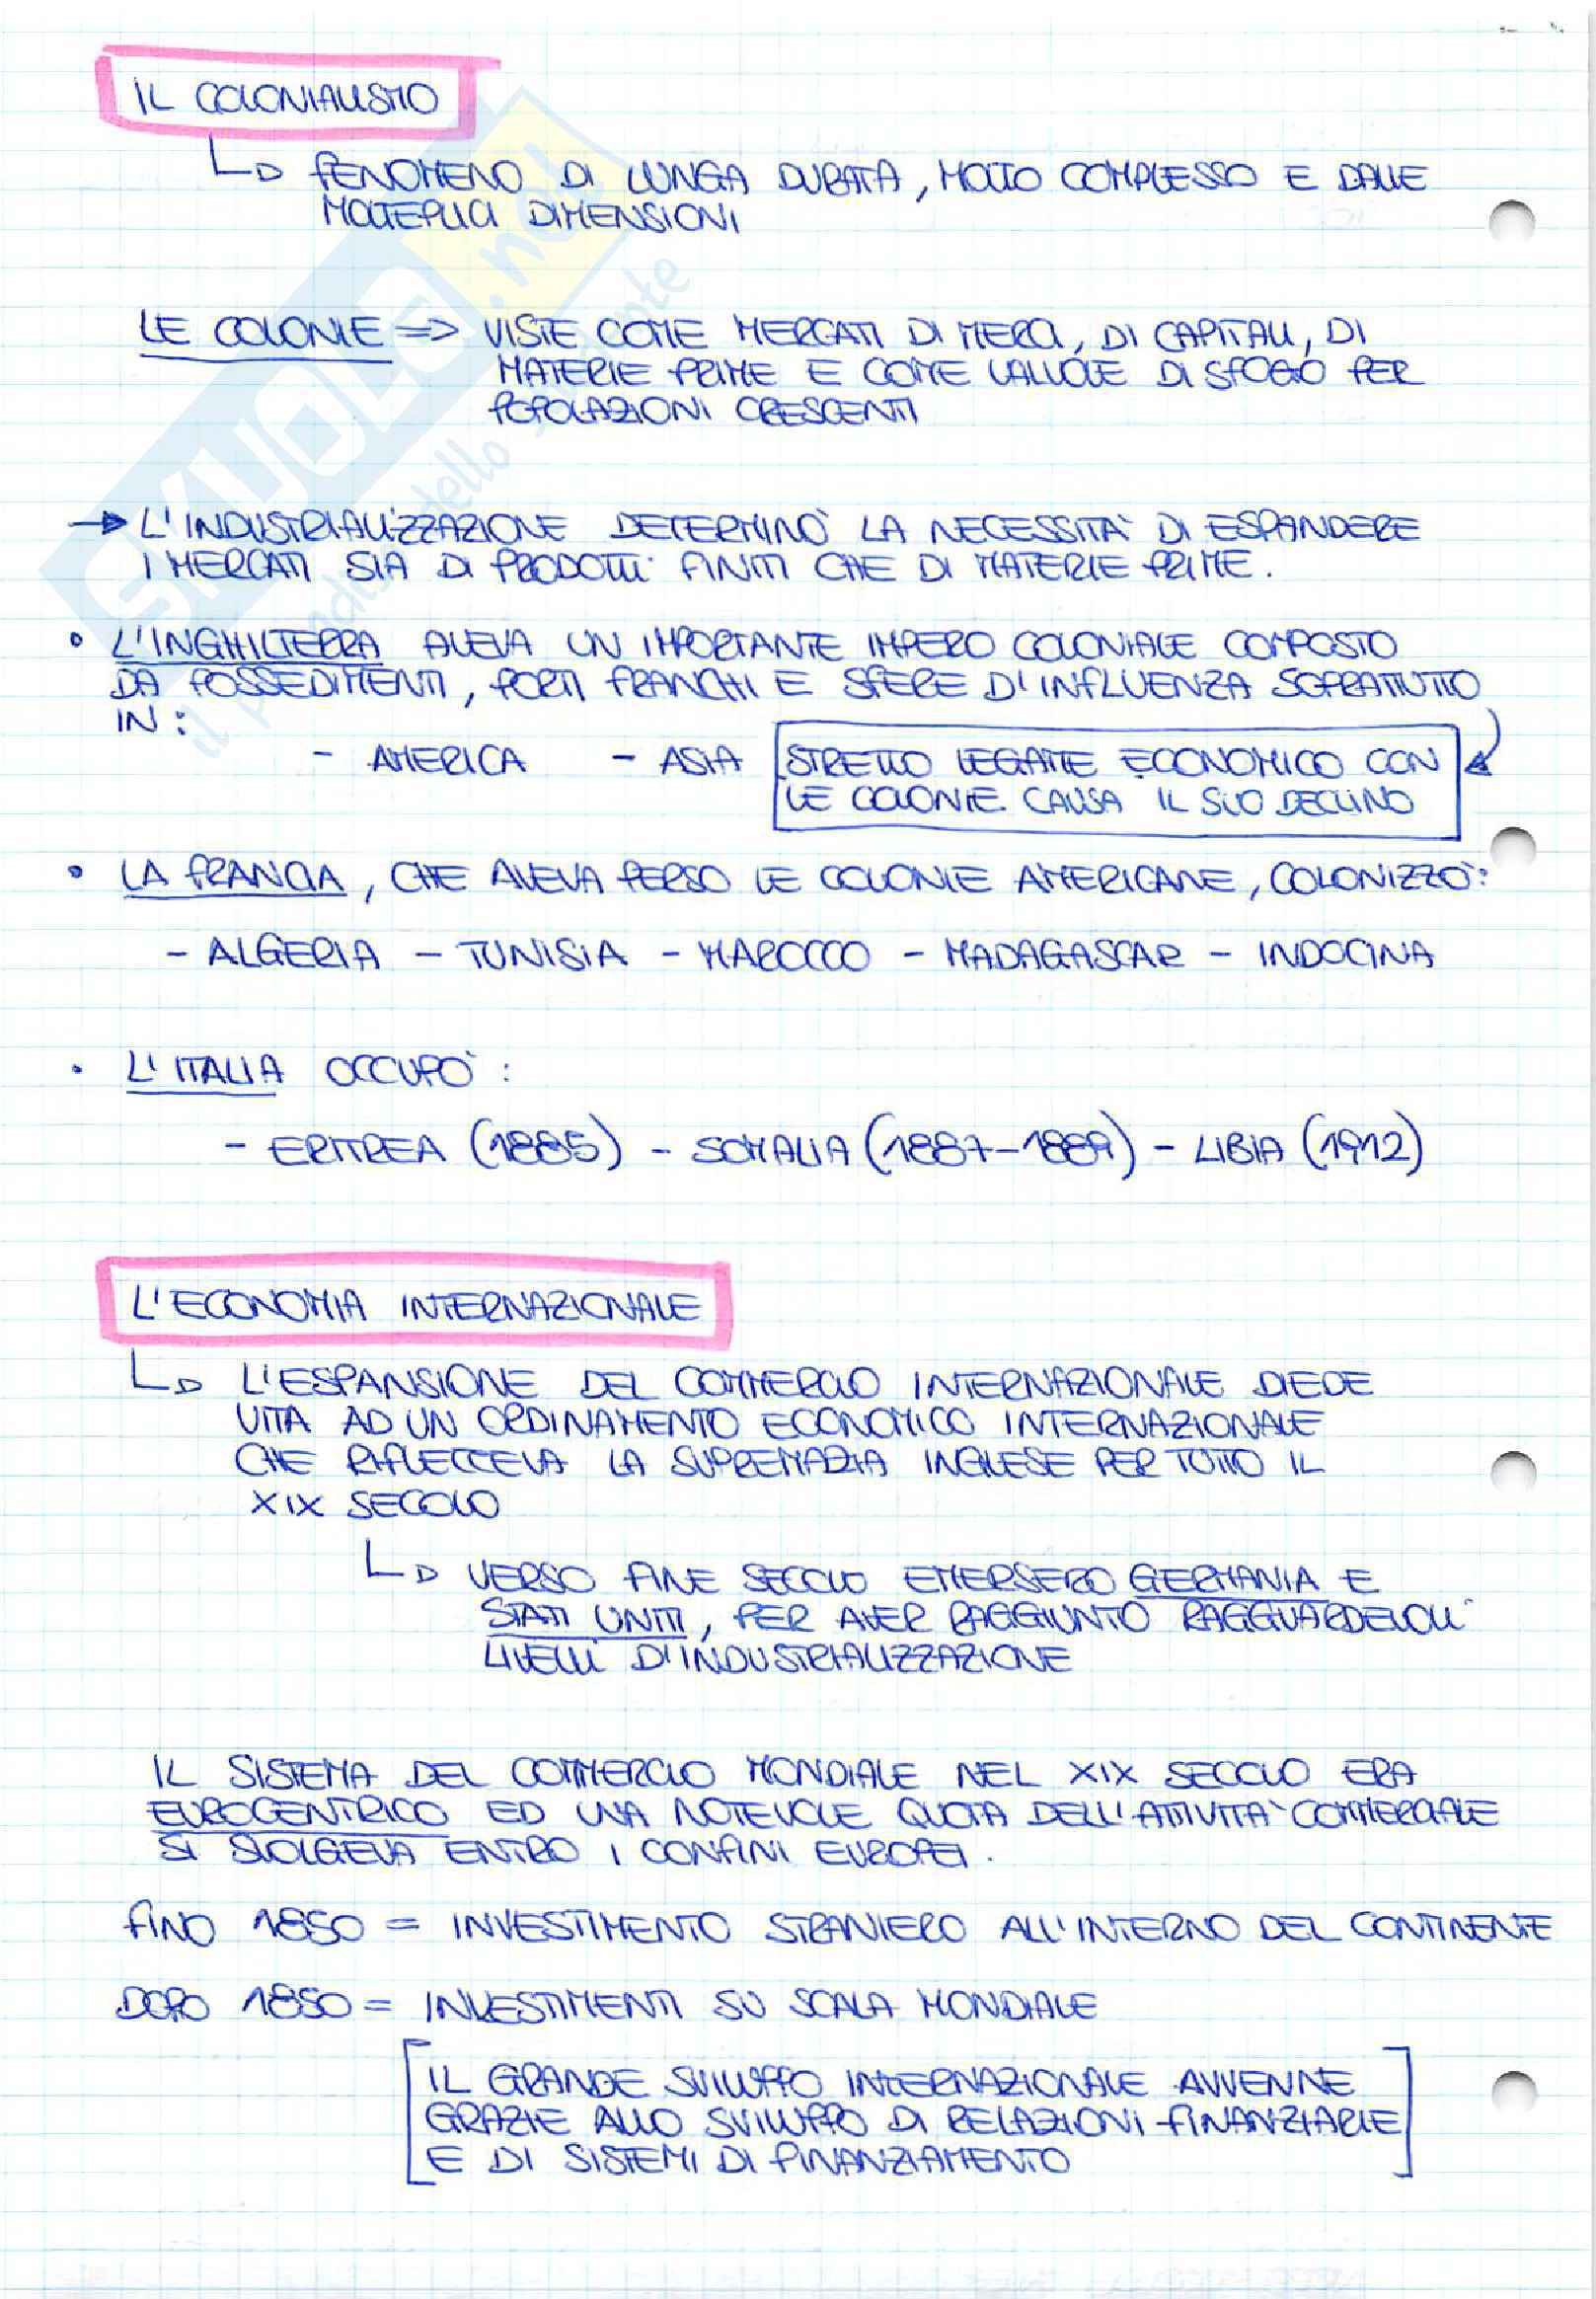 IL COLONIALISMO
↳ FENOMENO DI LUNGA DURATA, MOLTO COMPLESSO E DALLE
MOLTEPLICI DIMENSIONI
LE COLONIE => VISTE COME MERCATI DI MERCI, DI CAPITALI, DI
MATERIE PRIME E COME VALVOLE DI SFOGO PER
POPOLAZIONI CRESCENTI
→ L'INDUSTRIALIZZAZIONE DETERMINO' LA NECESSITA' DI ESPANDERE
I MERCATI SIA DI PRODOTTI FINITI CHE DI MATERIE PRIME.
• L'INGHILTERRA AVEVA UN IMPORTANTE IMPERO COLONIALE COMPOSTO
DA POSSEDIMENTI, PORTI FRANCHI E SFERE D'INFLUENZA SOPRATTUTTO
IN:
- AMERICA - ASIA STRETTO LEGAME ECONOMICO CON
LE COLONIE CAUSA IL SUO DECLINO
• LA FRANCIA, CHE AVEVA PERSO LE COLONIE AMERICANE, COLONIZZO':
- ALGERIA - TUNISIA - MAROCCO - MADAGASCAR - INDOCINA
• L'ITALIA OCCUPO':
- ERITREA (1885) - SOMALIA (1887-1889) - LIBIA (1912)
L'ECONOMIA INTERNAZIONALE
↳ L'ESPANSIONE DEL COMMERCIO INTERNAZIONALE DIEDE
VITA AD UN ORDINAMENTO ECONOMICO INTERNAZIONALE
CHE RIFLETTEVA LA SUPREMAZIA INGLESE PER TUTTO IL
XIX SECOLO
↳ VERSO FINE SECOLO EMERSERO GERMANIA E
STATI UNITI, PER AVER RAGGIUNTO RAGGUARDEVOLI
LIVELLI D'INDUSTRIALIZZAZIONE
IL SISTEMA DEL COMMERCIO MONDIALE NEL XIX SECOLO ERA
EUROCENTRICO ED UNA NOTEVOLE QUOTA DELL'ATTIVITA' COMMERCIALE
SI SVOLGEVA ENTRO I CONFINI EUROPEI.
FINO 1850 = INVESTIMENTO STRANIERO ALL'INTERNO DEL CONTINENTE
DOPO 1850 = INVESTIMENTI SU SCALA MONDIALE
[IL GRANDE SVILUPPO INTERNAZIONALE AVVENNE
GRAZIE ALLO SVILUPPO DI RELAZIONI FINANZIARIE
E DI SISTEMI DI FINANZIAMENTO]
SKUOLA.net